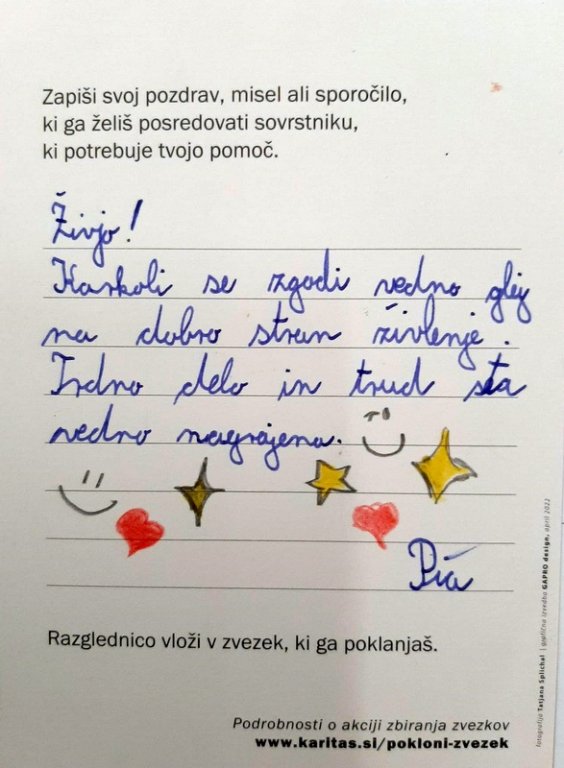 Zapiši svoj pozdrav, misel ali sporočilo,
ki ga želiš posredovati sovrstniku,
ki potrebuje tvojo pomoč.
Živjo!
Karkoli se zgodi vedno glej
na dobro stran živlenje.
Trdno delo in trud sta
vedno nagrajena.
Pia
Razglednico vloži v zvezek, ki ga poklanjaš.
Podrobnosti o akciji zbiranja zvezkov
www.karitas.si/pokloni-zvezek
fotografija Tatjana Splichal | grafična izvedba GAPRO design, april 2022